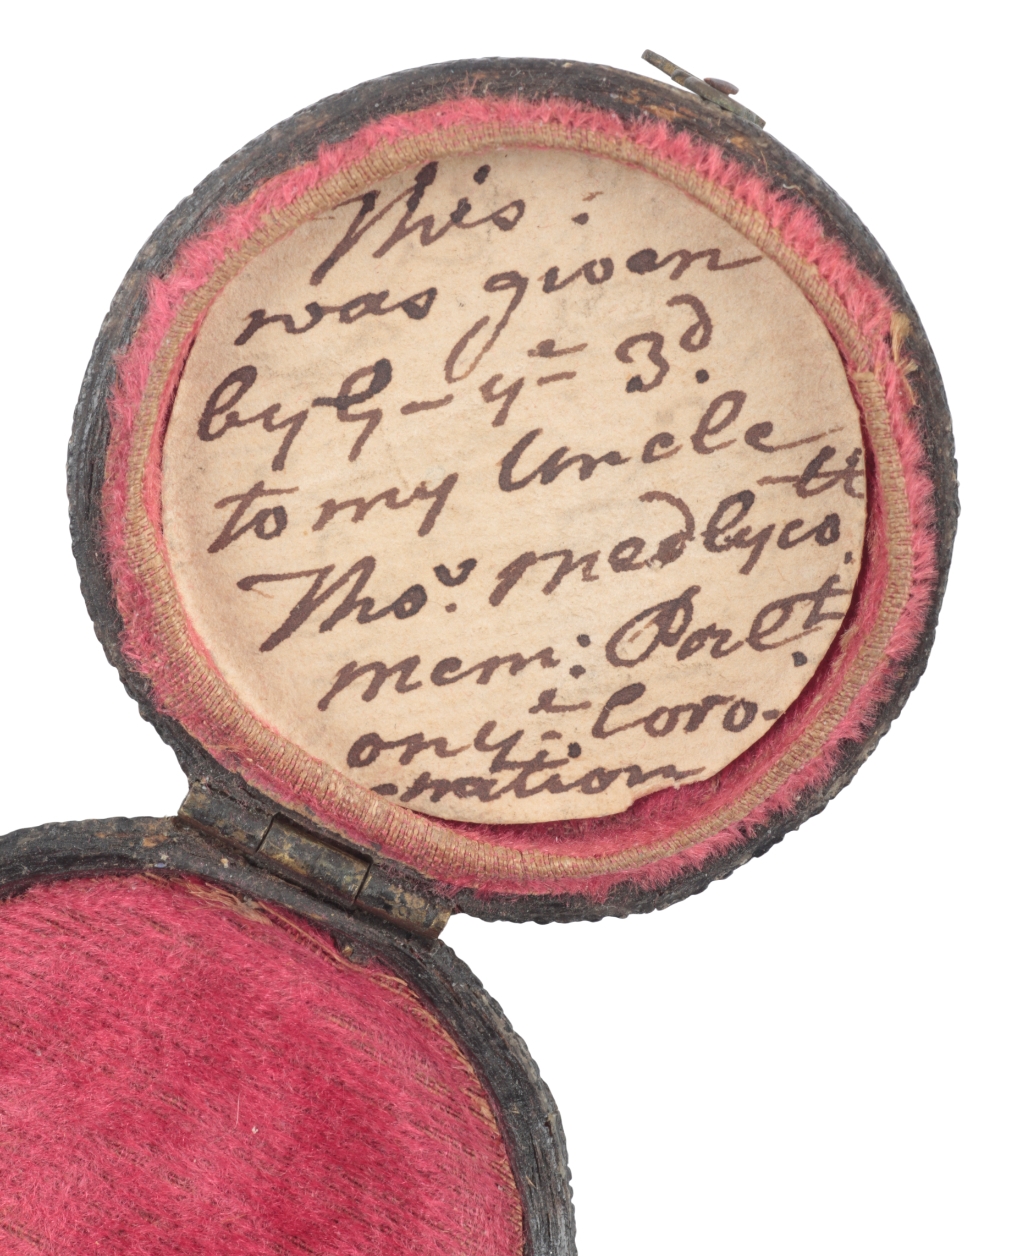 This :
was given
by G- yᵉ 3ᵈ.
to my Uncle
Thoˢ. Medlycoᵗᵗ.
mem: Parlᵗ.
on yᵉ: Coro-
-nation